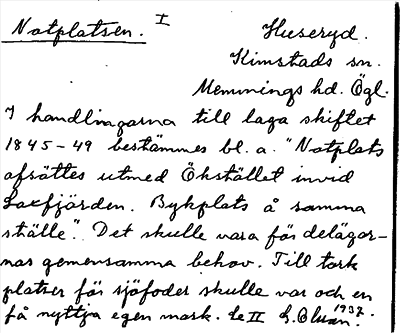 Notplatsen. I
Huseryd.
Kimstads sn.
Memmings hd. Ögl.
I handlingarna till laga skiftet
1845-49 bestämmes bl. a. "Notplats
afsättes utmed Ökstället invid
Laxfjörden. Bykplats å samma
ställe". Det skulle vara för delägar-
nas gemensamma behov. Till tork
platser för sjöfoder skulle var och en
få nyttja egen mark. Se II 1937.